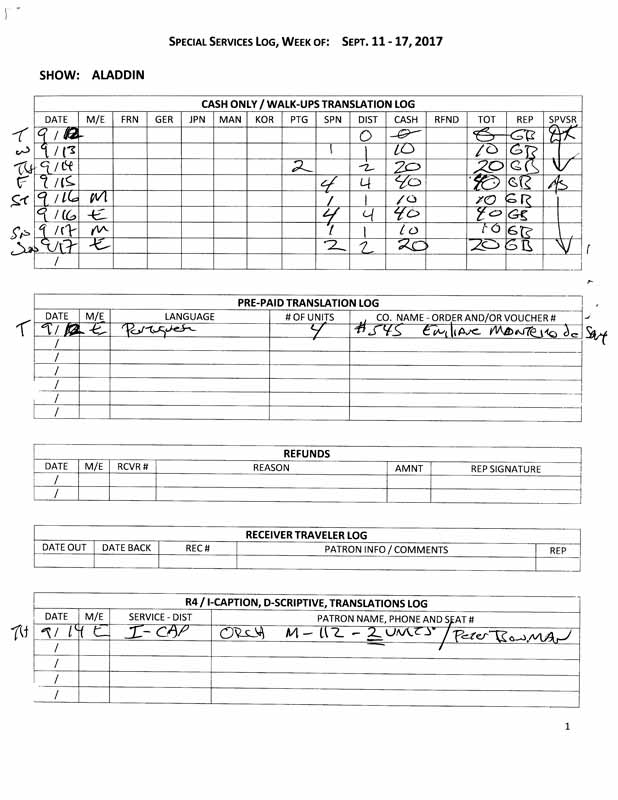 SPECIAL SERVICES LOG, WEEK OF: SEPT. 11 - 17, 2017
SHOW: ALADDIN
CASH ONLY / WALK-UPS TRANSLATION LOG
DATE M/E FRN GER JPN MAN KOR PTG SPN DIST CASH RFND TOT REP SPVSR
T 9/12 0 0 0 GB
W 9/13 1 1 10 10 GB
TH 9/14 2 2 20 20 GB
F 9/15 4 4 40 40 GB
ST 9/16 M 1 1 10 10 GB
9/16 E 4 4 40 40 GB
SN 9/17 M 1 1 10 10 GB
9/17 E 2 2 20 20 GB
/
PRE-PAID TRANSLATION LOG
DATE M/E LANGUAGE # OF UNITS CO. NAME - ORDER AND/OR VOUCHER #
T 9/12 E 4 #545 Emiliane Monteiro de
/
/
/
/
/
/
REFUNDS
DATE M/E RCVR # REASON AMNT REP SIGNATURE
/
/
RECEIVER TRAVELER LOG
DATE OUT DATE BACK REC # PATRON INFO / COMMENTS REP
R4 / I-CAPTION, D-SCRIPTIVE, TRANSLATIONS LOG
DATE M/E SERVICE - DIST PATRON NAME, PHONE AND SEAT #
TH 9/14 E I-CAP ORCH M-112 - 2 UNITS / Peter BOWMAN
/
/
/
/
1